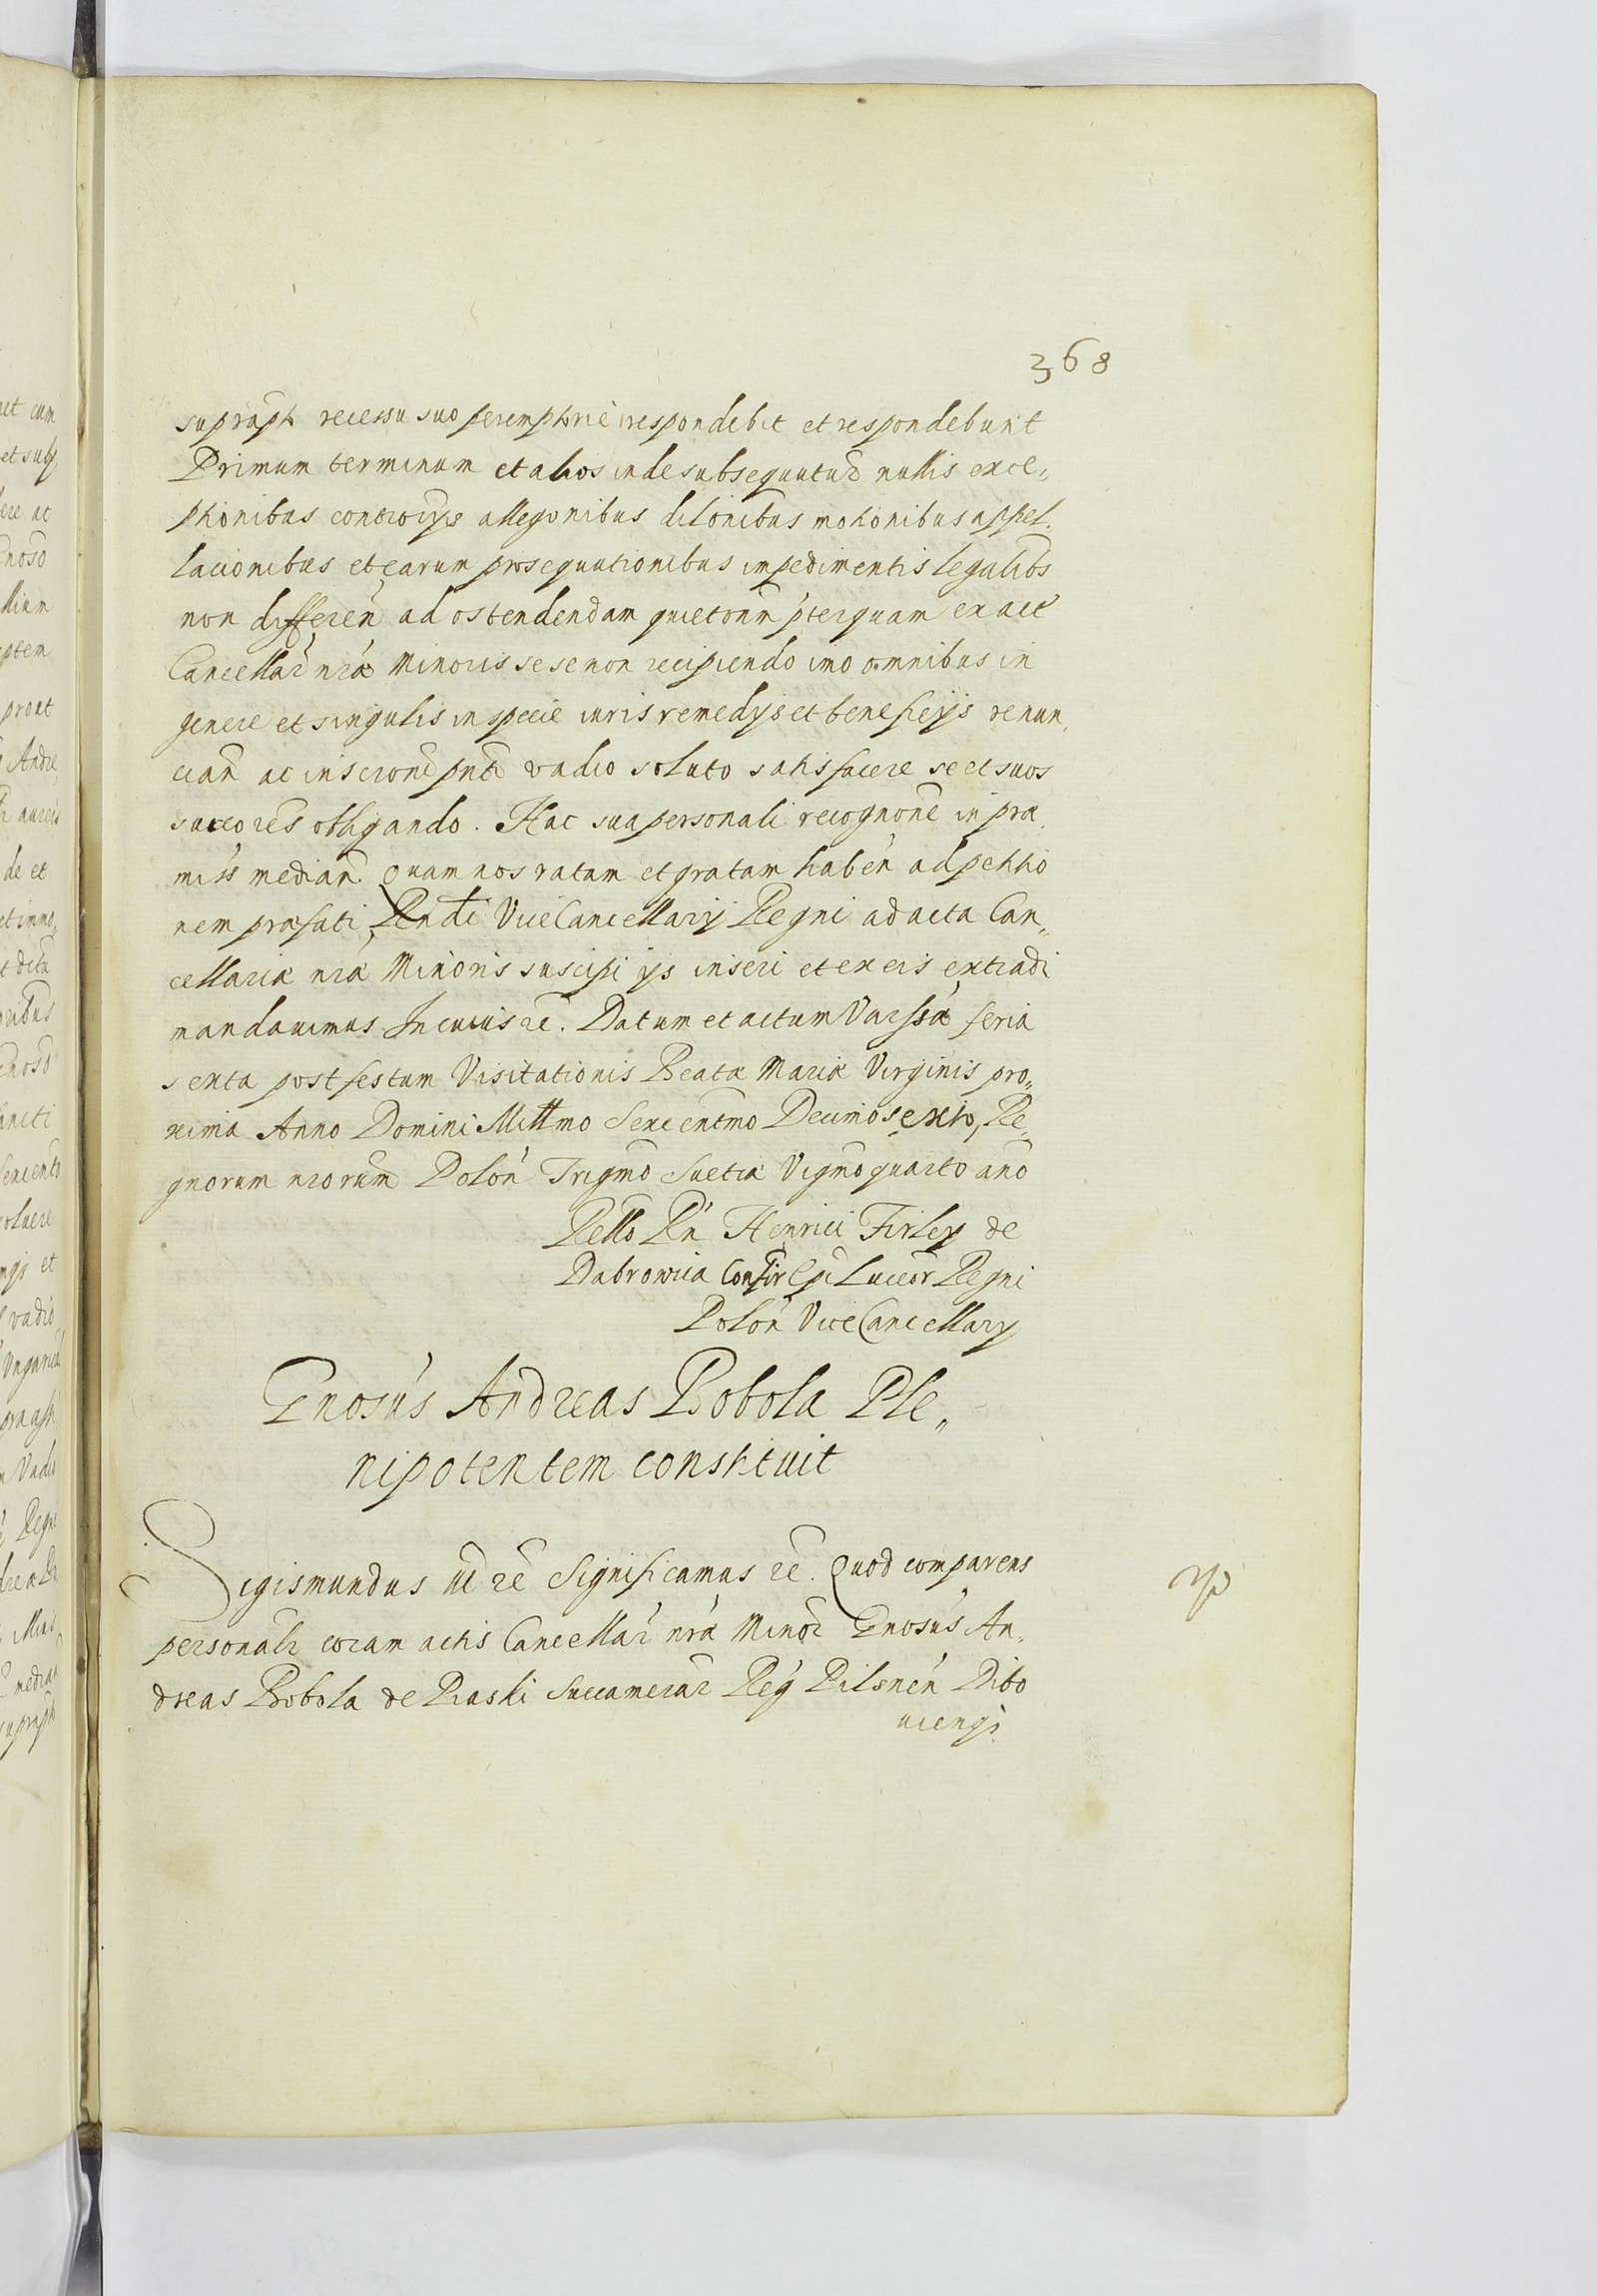 368
supraptı recessu suo peremptorie respondebit et respondebunt
Primum terminum et alios inde subsequutur nullis exce„
ptionibus controuijs allegonibus dilonibus motionibus appel„
lacionibus et earum prosequutionibus impedimentis legalibs
non differen ad ostendendam quietonem pterquam ex act
Cancellar nrae Minoris sese non recipiendo imo omnibus in
genere et singulis in specie iuris remedijs et beneficijs renun„
cian ac inscrone pnti vadio soluto satisfacere se et suos
succores obligando. Hac sua personali recognone in prae„
miss median. Quam nos ratam et gratam haben ad petitio
nem praefati Rndi Vice Cancellarij Regni ad acta Can„
cellariae nrae Minoris suscipi ijs inseri et ex eis extradi
mandauimus In cuius re. Datum et actum Varssae feria
sexta post festum Visitationis Beatae Mariae Virginis pro„
xima Anno Domini Millmo Sexcentmo Decimosexto, Re„
gnorum nrorum Polon Trigmo Suetiae Vigmo quarto ano
Rello Rn Henrici Firley de
Dabrowica Confir Epi Luceor Regni
Polon Vice Cancellary
Gnosus Andreas Bobola Ple„
nipotentem constituit
Sigismundus III re Significamus re. Quod comparens
personalr coram actis Cancellar nrae Minor Gnosus An„
dreas Bobola de Piaski Succamerar Reg Pilsnen Dibo
uiengi